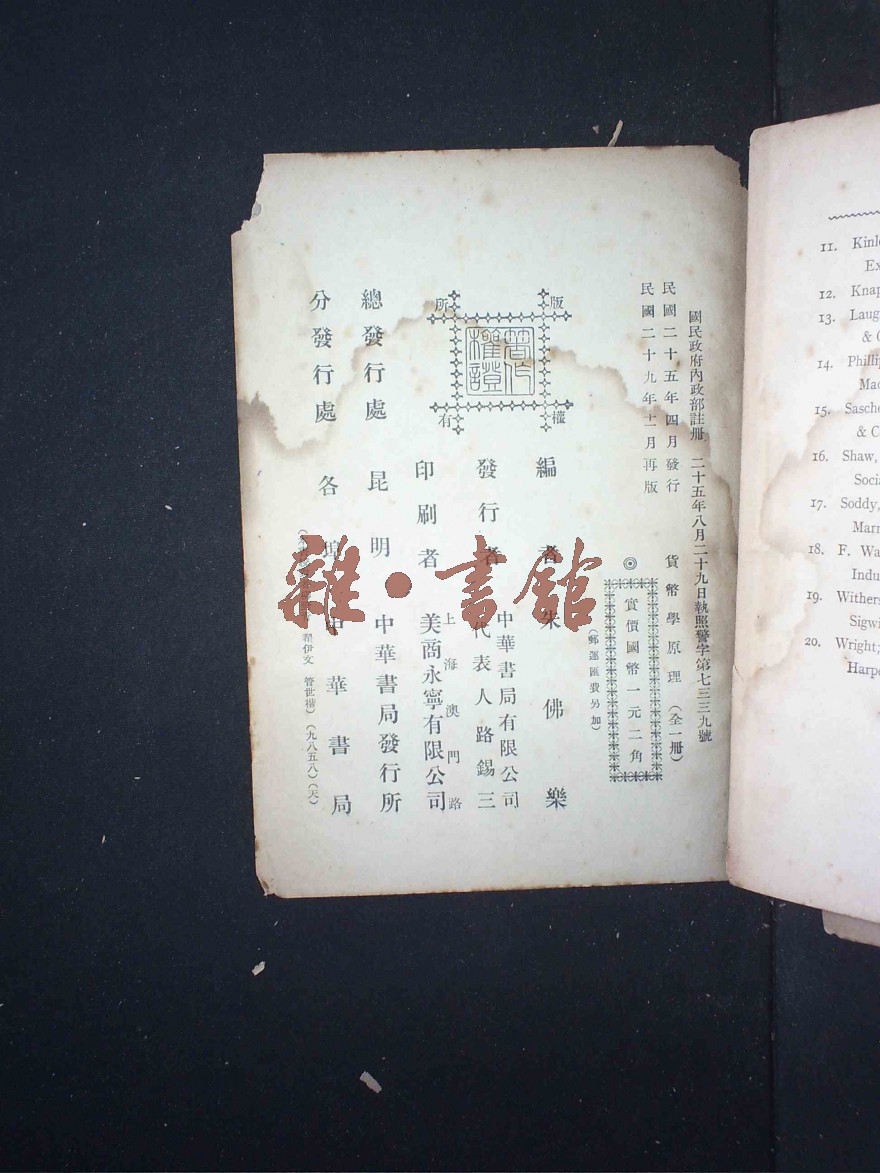 國民政府內政部註冊 二十五年八月二十九日執照警字第七三三九號
民國二十五年四月發行
民國二十九年十一月再版
貨幣學原理（全一冊）
◎
實價國幣一元二角
（郵運匯費另加）
版權所有
著作權證
編者 朱佛樂
發行者 中華書局有限公司
代表人路錫三
印刷者 上海澳門路
美商永寧有限公司
總發行處 昆明 中華書局發行所
分發行處 各埠中華書局
翟伊文 管世楷）（九八五八）（天）
雜·書館
11. Kinl
Ex
12. Knap
13. Laug
& C
14. Phillip
Mac
15. Sasche
& Co
16. Shaw,
Socia
17. Soddy,
Marr
18. F. Wa
Indu
19. Withers
Sigwi
20. Wright;
Harpe